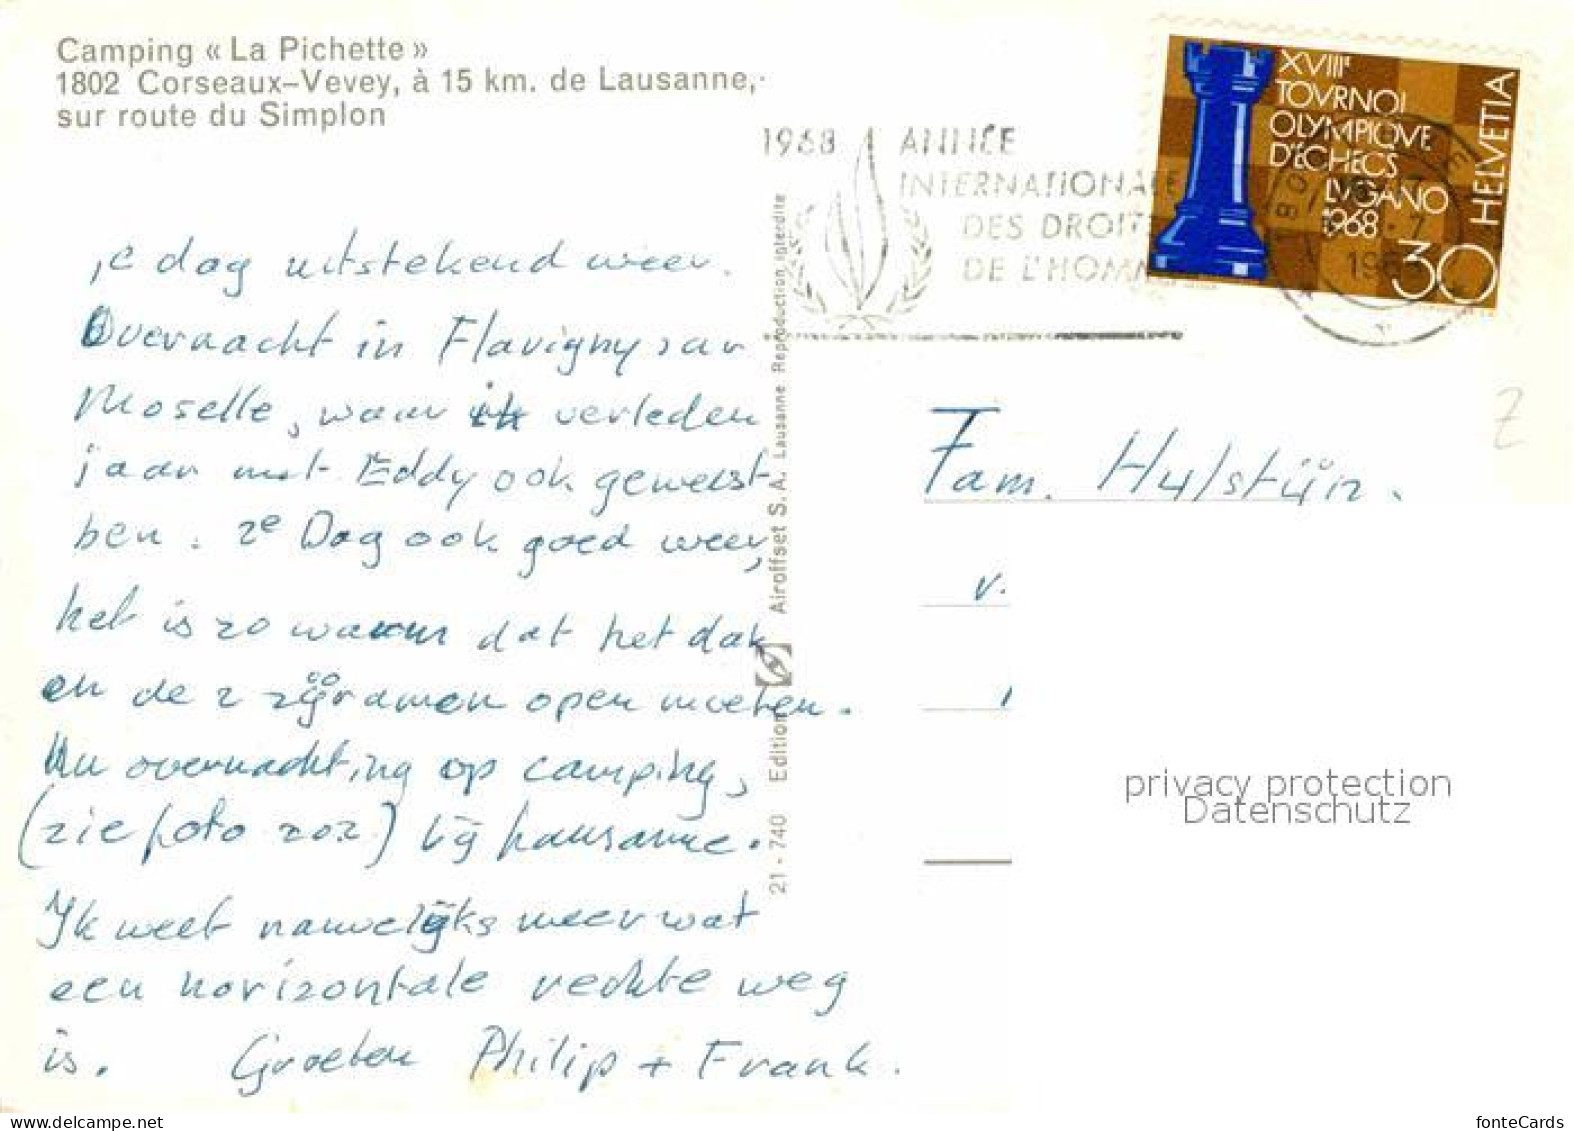 Camping « La Pichette »
1802 Corseaux-Vevey, à 15 km. de Lausanne,
sur route du Simplon
1e dag uitstekend weer.
Overnacht in Flavigny sur
Moselle, waar ik verleden
jaar met Eddy ook geweest
ben. 2e Dag ook goed weer,
het is zo warm dat het dak
en de 2 zijramen open moeten.
Nu overnachting op camping,
(zie foto zoz) bij Lausanne.
Ik weet nauwelijks meer wat
een horizontale rechte weg
is. Groeten Philip + Frank.
21 - 740 Edition Airoffset S.A. Lausanne Reproduction interdite
1968 ANNÉE
INTERNATIONALE
DES DROIT
DE L'HOMM
XVIIIe
TOVRNOI
OLYMPIQVE
D'ÉCHECS
LVGANO
1968
HELVETIA
30
Fam. Hulstijn.
v.
Z
privacy protection
Datenschutz
fonteCards